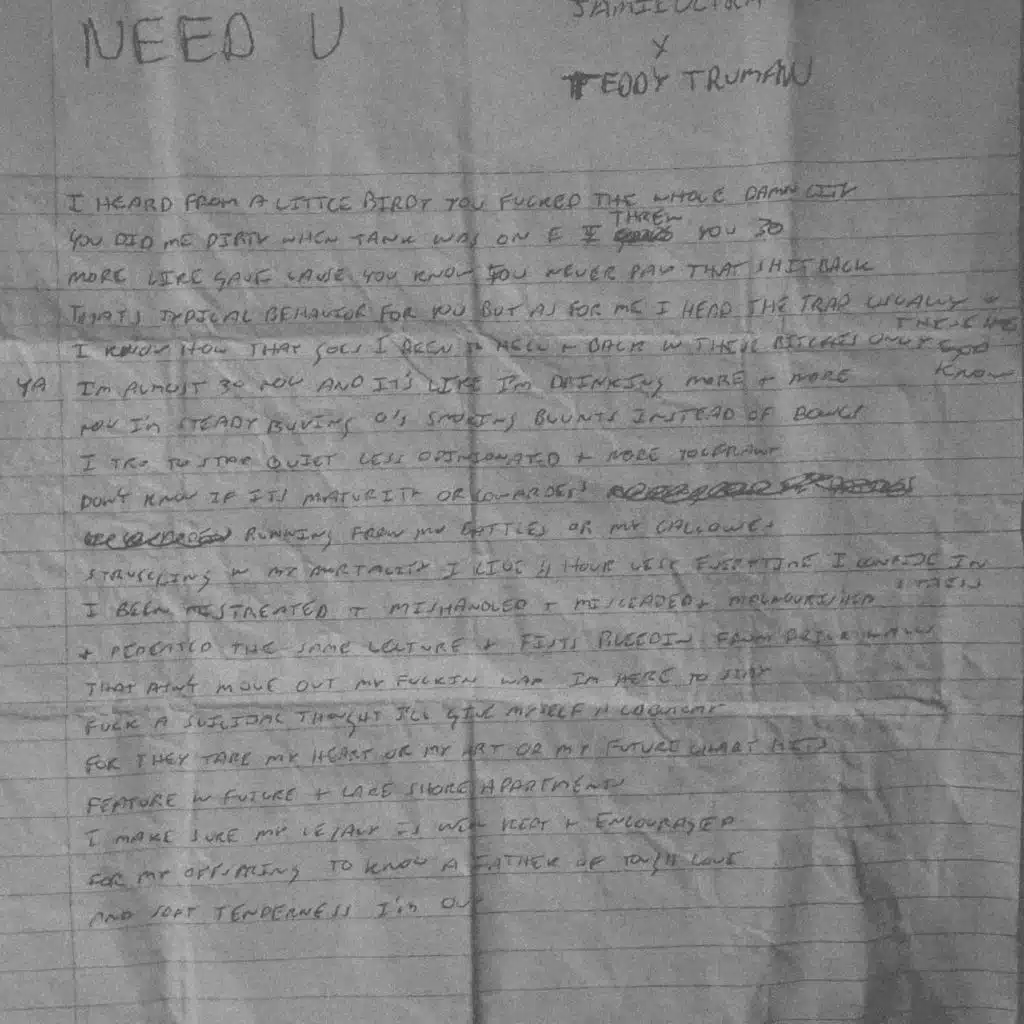 NEED U
X
TEDDY TRUMAN
I HEARD FROM A LITTLE BIRDY YOU FUCKED THE WHOLE DAMN CITY
THREW
YOU DID ME DIRTY WHEN TANK WAS ON E I YOU 30
MORE LIKE GAVE CAUSE YOU KNOW YOU NEVER PAY THAT SHIT BACK
THATS TYPICAL BEHAVIOR FOR YOU BUT AS FOR ME I HEAD THE TRAP USUALLY
I KNOW HOW THAT GOES I BEEN TO HELL + BACK W THESE BITCHES ONLY
KNOW
YA I'M ALMOST 30 NOW AND IT'S LIKE I'M DRINKING MORE + MORE
NOW I'M STEADY BUYING O'S SMOKING BLUNTS INSTEAD OF BONGS
I TRY TO STAY QUIET LESS OPINIONATED + MORE TOLERANT
DON'T KNOW IF ITS MATURITY OR
RUNNING FROM MY BATTLES OR MY
STRUGGLING W MY MORTALITY I LIVE HOUR LESS EVERYTIME I CONFIDE IN
STRESS
I BEEN MISTREATED + MISHANDLED + MISLEADED + MALNOURISHED
+ REPEATED THE SAME LECTURE + FISTS BLEEDIN FROM
THAT AIN'T MOVE OUT MY FUCKIN WAY IM HERE TO STAY
FUCK A SUICIDAL THOUGHT I'LL GIVE MYSELF A
FOR THEY TAKE MY HEART OR MY ART OR MY FUTURE CHART HITS
FEATURE W FUTURE + LAKE SHORE APARTMENTS
I MAKE SURE MY LEGACY IS WELL KEPT + ENCOURAGED
FOR MY OFFSPRING TO KNOW A FATHER OF TOUGH LOVE
AND SOFT TENDERNESS I'M OUT